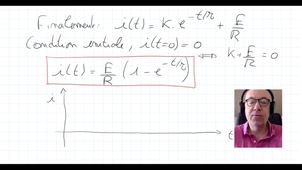 Finalement : i(t) = K. e^{-t/τ} + E/R
Condition initiale, i(t=0) = 0
⇔ K + E/R = 0
i(t) = E/R (1 - e^{-t/τ})
i
t